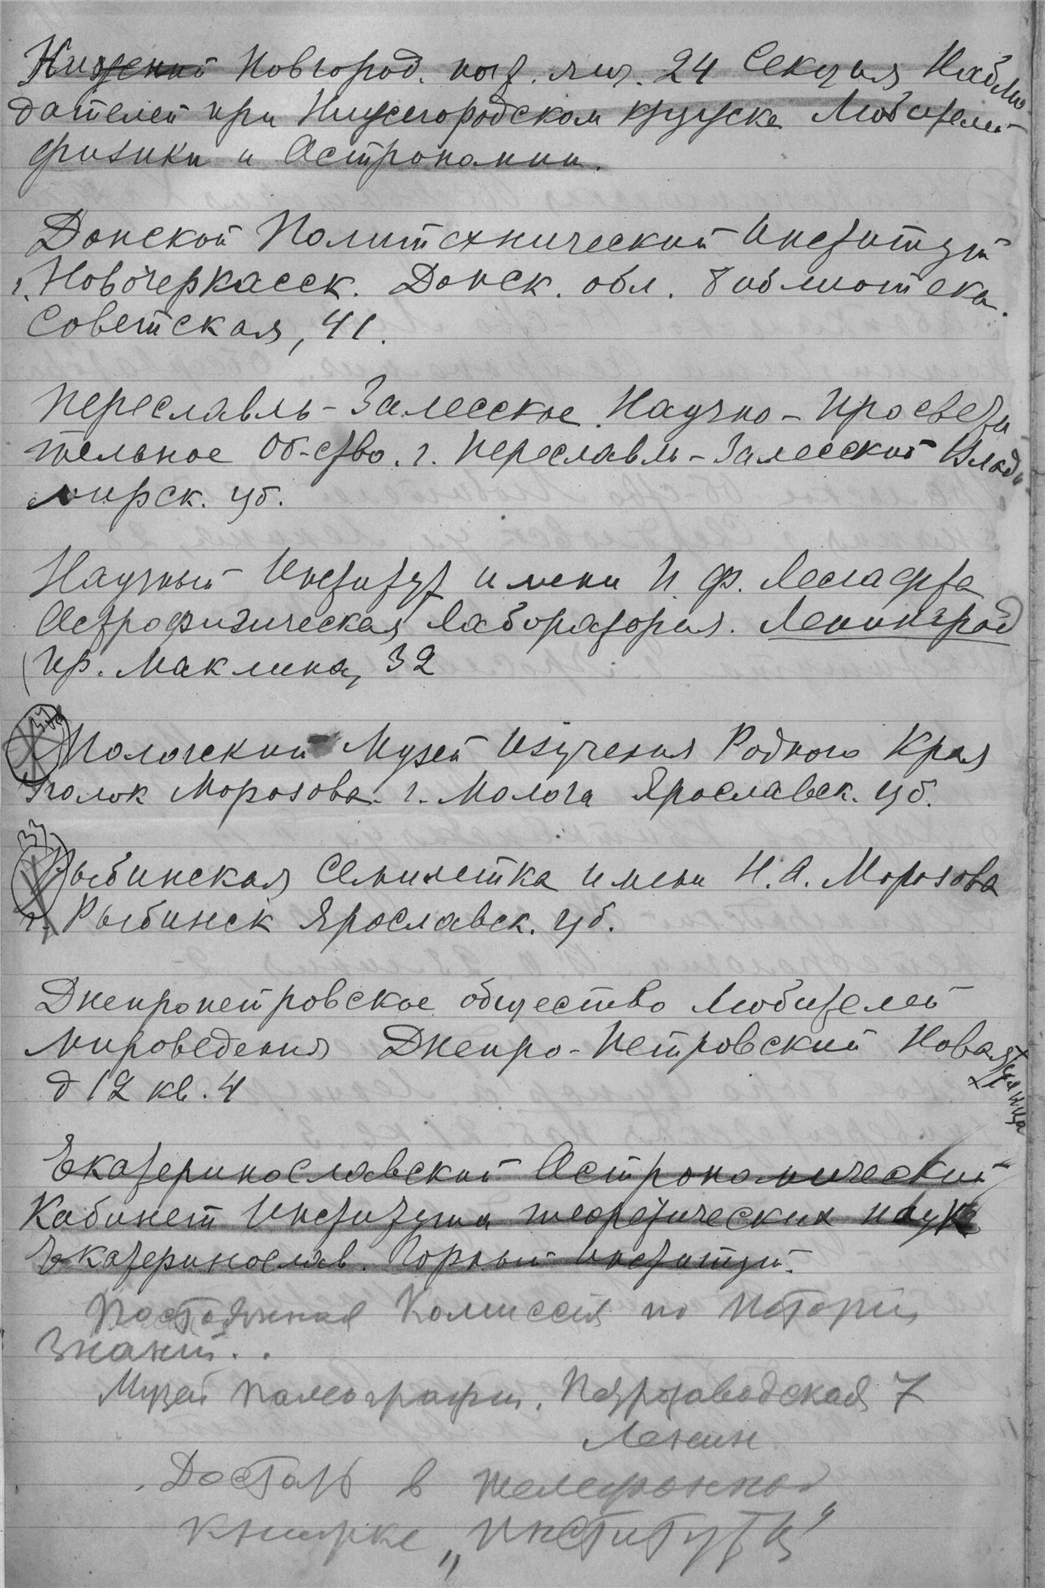 Нижний Новгород. почт. ящ. 24 Секция Наблю
дателей при Нижегородском кружке Любителей
физики и Астрономии.
Донской Политехнический Институт
г. Новочеркасск. Донск. обл. библиотека.
Советская, 41.
Переславль-Залесское Научно-Просвети
тельное Об-ство. г. Переславль-Залесский Влади
мирск. губ.
Научный Институт имени П. Ф. Лесгафта
Астрофизическая Лаборатория. Ленинград
пр. Маклина, 32
Мологский Музей Изучения Родного Края
Уголок Морозова. г. Молога Ярославск. губ.
Рыбинская Семилетка имени Н. А. Морозова
г. Рыбинск Ярославск. губ.
Днепропетровское общество Любителей
мироведения Днепро-Петровский Новая улица
д 12 кв. 4
Екатеринославский Астрономический
Кабинет Института теоретических наук
Екатеринослав. Горный институт.
Постоянная Комиссия по Истории
Знаний..
Музей палеографии. Петрозаводская 7
Ленин
Достать в телефонной
книжке „Институты"